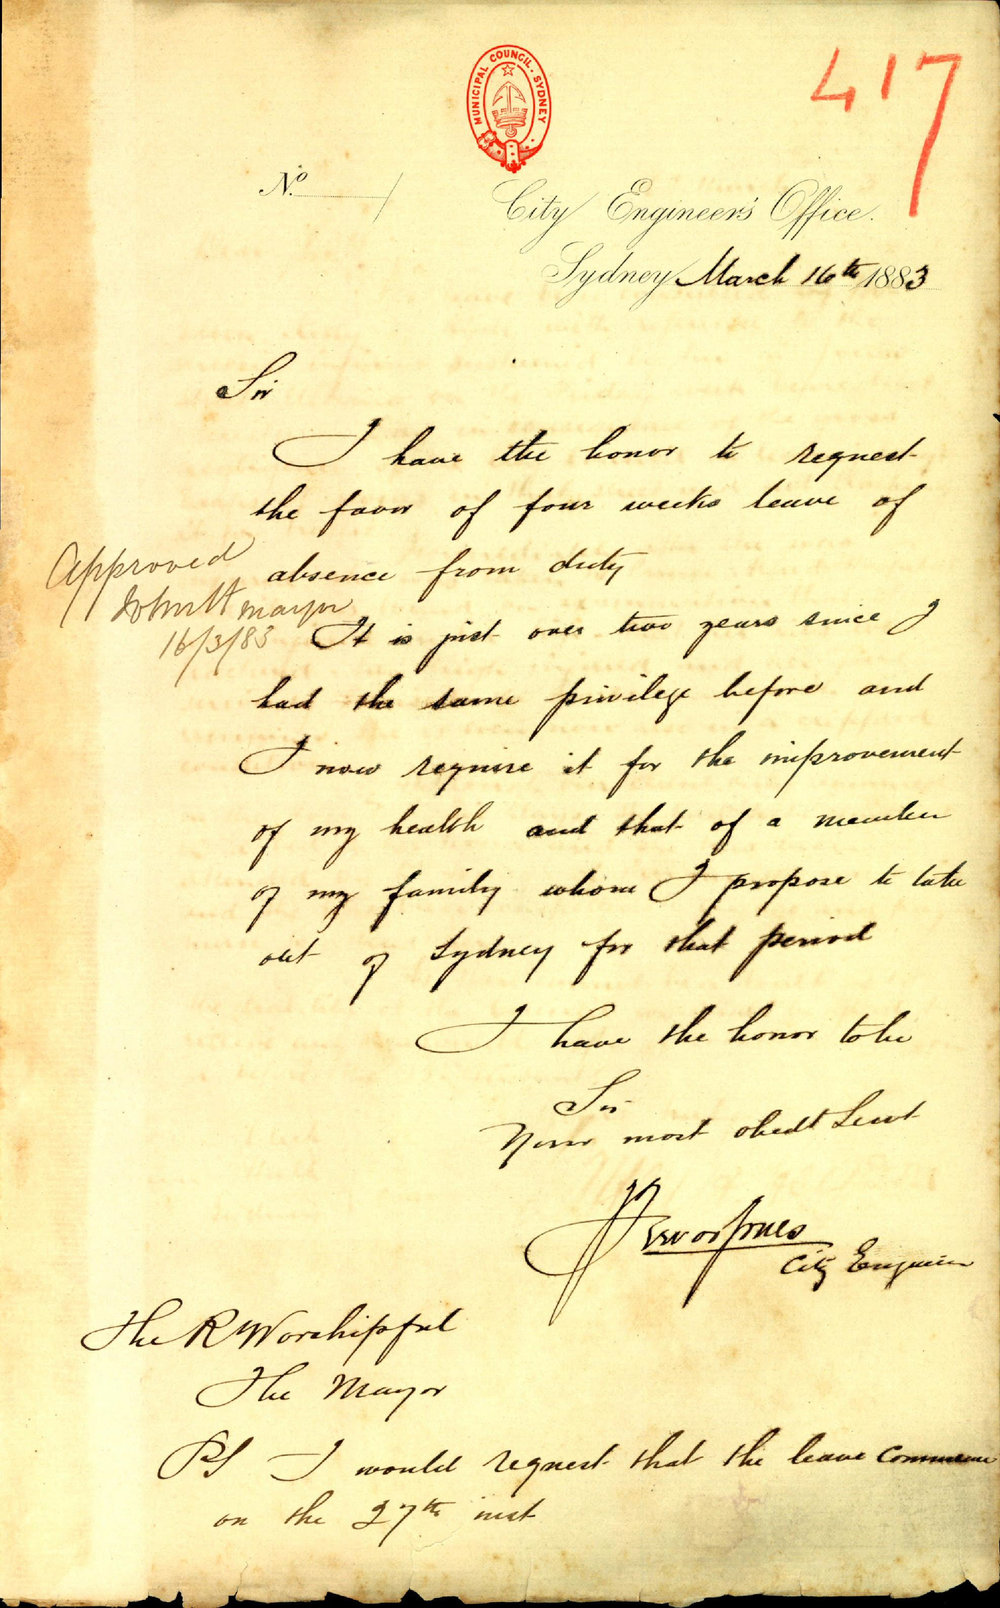 MUNICIPAL COUNCIL. SYDNEY
417
No. /
City Engineer's Office.
Sydney March 16th 1883
Sir
I have the honor to request
the favor of four weeks leave of
absence from duty
Approved
mayor
16/3/83
It is just over two years since I
had the same privilege before and
I now require it for the improvement
of my health and that of a member
of my family whom I propose to take
out of Sydney for that period
I have the honor to be
Sir
Your most obedt Servt
City Engineer
The R Worshipful
The Mayor
PS I would request that the leave commence
on the 27th inst